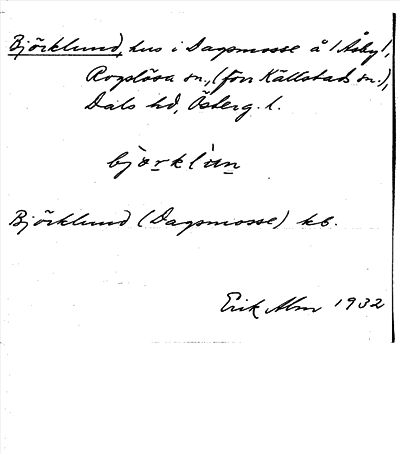 Björklund, hus i Dagsmosse å 1 Åsby 1,
Rogslösa sn., (förr Källstads sn.),
Dals hd, Österg. l.
bjö̀rklùn
Björklund (Dagsmosse) kb.
Erik Alm 1932